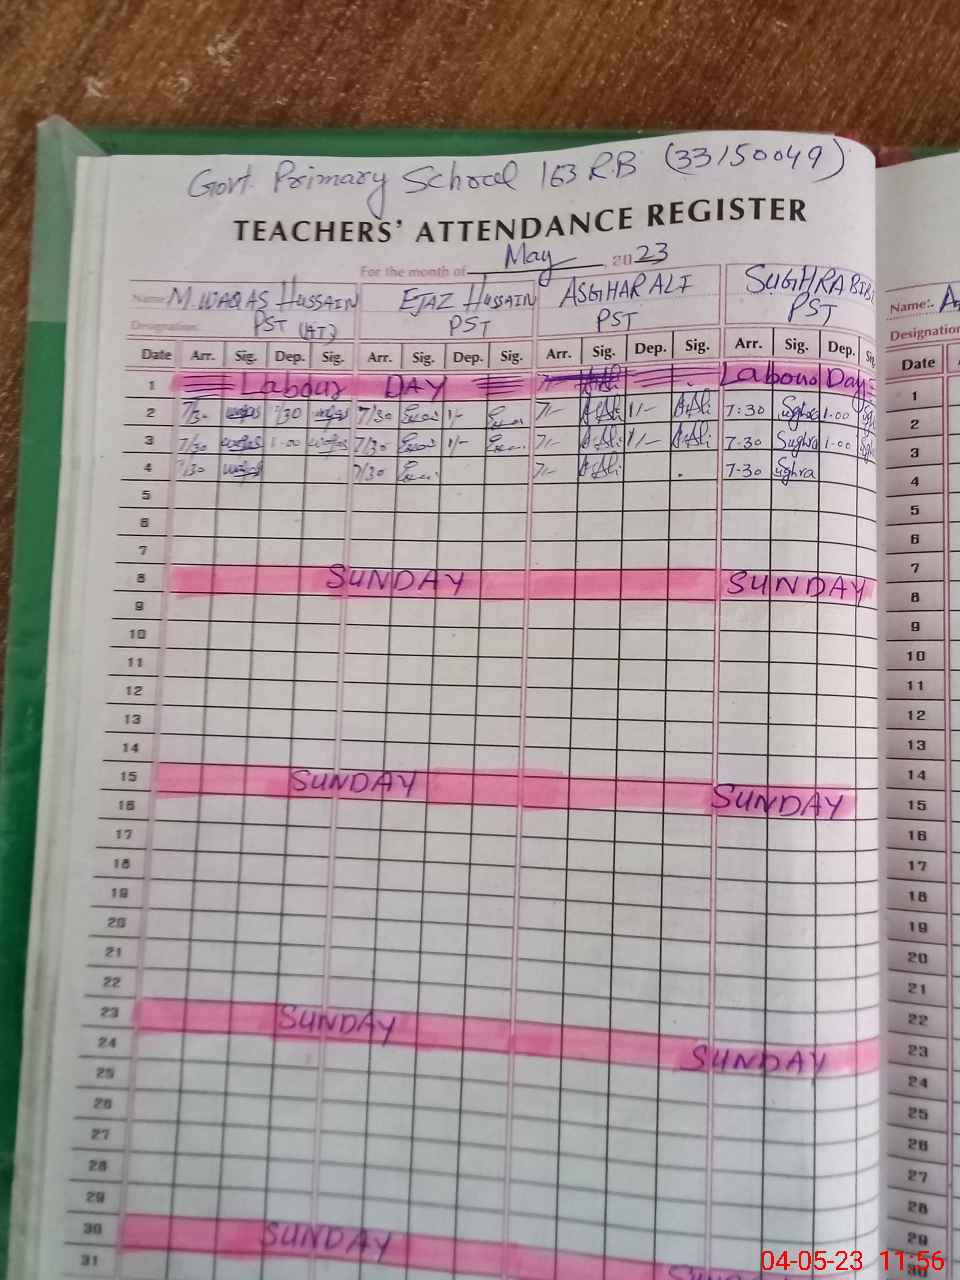 Govt. Primary School 163 R.B (33150049)
TEACHERS' ATTENDANCE REGISTER
For the month of May, 2023
Name M.WAQAS HUSSAIN EJAZ HUSSAIN ASGHAR ALI SUGHRA BIBI Name:.
Designation PST (AT) PST PST PST Designation
Date Arr. Sig. Dep. Sig. Arr. Sig. Dep. Sig. Arr. Sig. Dep. Sig. Arr. Sig. Dep. Date
1 Labour DAY Labour Day 1
2 7/30 waqas 7/30 7/- A.Ali 1/- A.Ali 7:30 Sughra 1.00 2
3 7/30 waqas 1.00 waqas 7/30 1/- 7/- A.Ali 1/- A.Ali 7-30 Sughra 1.00 3
4 7/30 waqas 7/30 7/- A.Ali 7-30 Sughra 4
5 5
6 6
7 7
8 SUNDAY SUNDAY 8
9 9
10 10
11 11
12 12
13 13
14 14
15 SUNDAY SUNDAY 15
16 16
17 17
18 18
19 19
20 20
21 21
22 22
23 SUNDAY SUNDAY 23
24 24
25 25
26 26
27 27
28 28
29 29
30 SUNDAY 30
31 SUNDAY
04-05-23 11:56